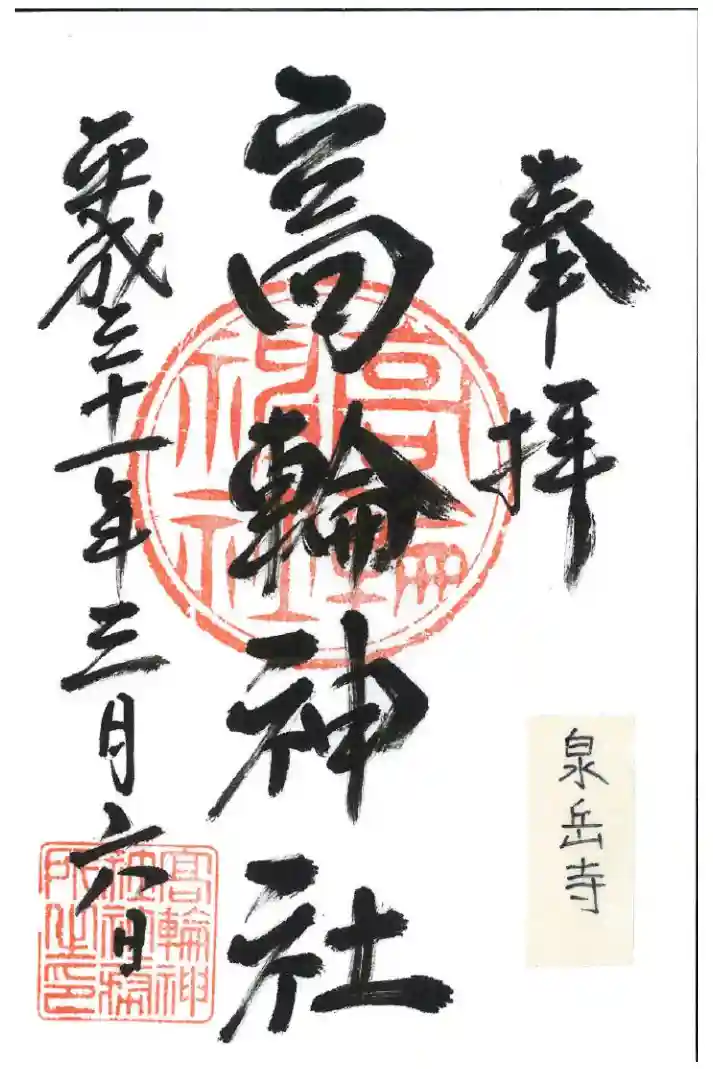 奉拝
高輪神社
平成三十一年三月六日
泉岳寺
高輪神社
高輪神社社務所之印